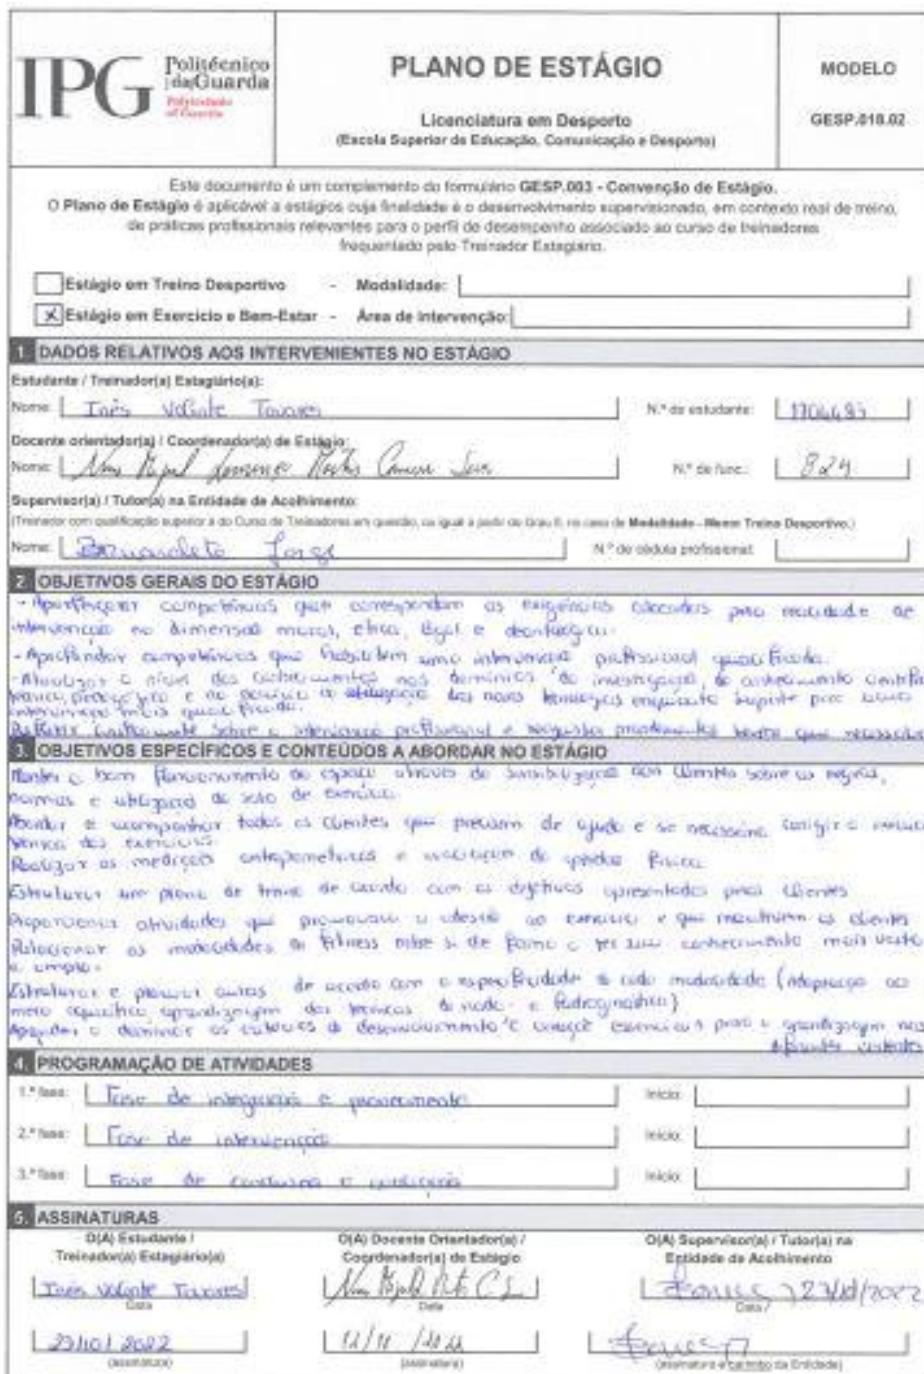 IPG Politécnico da Guarda
Polytechnic of Guarda
PLANO DE ESTÁGIO
Licenciatura em Desporto
(Escola Superior de Educação, Comunicação e Desporto)
MODELO
GESP.018.02
Este documento é um complemento do formulário GESP.003 - Convenção de Estágio.
O Plano de Estágio é aplicável a estágios cuja finalidade é o desenvolvimento supervisionado, em contexto real de treino,
de práticas profissionais relevantes para o perfil de desempenho associado ao curso de treinadores
frequentado pelo Treinador Estagiário.
Estágio em Treino Desportivo - Modalidade:
x Estágio em Exercício e Bem-Estar - Área de Intervenção:
1. DADOS RELATIVOS AOS INTERVENIENTES NO ESTÁGIO
Estudante / Treinador(a) Estagiário(a):
Nome: Inês Volante Tavares N.º de estudante:
Docente orientador(a) / Coordenador(a) de Estágio:
Nome: Nuno Miguel Lourenço N.º de func.: 824
Supervisor(a) / Tutor(a) na Entidade de Acolhimento:
(Treinador com qualificação superior à do Curso de Treinadores em questão, ou igual a partir do Grau II, no caso de Modalidade - Treino Desportivo.)
Nome: Jorge N.º de cédula profissional:
2. OBJETIVOS GERAIS DO ESTÁGIO
- Aperfeiçoar competências que correspondam as exigências colocadas pela realidade de
intervenção na dimensão moral, ética, legal e deontológica.
- Aprofundar competências que habilitem uma intervenção profissional qualificada.
- Atualizar o nível dos conhecimentos nos domínios da investigação, do conhecimento científico
e no domínio da utilização das novas tecnologias enquanto suporte para uma
intervenção mais qualificada.
Refletir sobre a intervenção profissional e sempre que necessário
3. OBJETIVOS ESPECÍFICOS E CONTEÚDOS A ABORDAR NO ESTÁGIO
Manter o bom funcionamento do espaço através da sensibilização dos clientes sobre as regras,
normas e utilização da sala de exercício.
Abordar e acompanhar todos os clientes que precisem de ajuda e se necessário corrigir a
técnica dos exercícios.
Realizar as medições antropométricas e avaliação da aptidão física
Estruturar um plano de treino de acordo com os objetivos apresentados pelos clientes
Proporcionar atividades que promovam a adesão ao exercício e que motivem os clientes
Relacionar as modalidades de fitness entre si de forma a ter um conhecimento mais vasto
e amplo.
Estruturar e planear aulas de acordo com a especificidade de cada modalidade (adaptação ao
meio aquático, aprendizagem das técnicas de nado e hidroginástica)
Aprender a dominar os de desenvolvimento e essenciais para a aprendizagem nos
diferentes contextos
4. PROGRAMAÇÃO DE ATIVIDADES
1.ª fase: Fase de integração e planeamento Início:
2.ª fase: Fase de intervenção Início:
3.ª fase: Fase de conclusão e avaliação Início:
5. ASSINATURAS
O(A) Estudante /
Treinador(a) Estagiário(a)
O(A) Docente Orientador(a) /
Coordenador(a) de Estágio
O(A) Supervisor(a) / Tutor(a) na
Entidade de Acolhimento
Inês Volante Tavares
Data
Data
Data
/2022
2022
(assinatura)
(assinatura)
(assinatura e carimbo da Entidade)